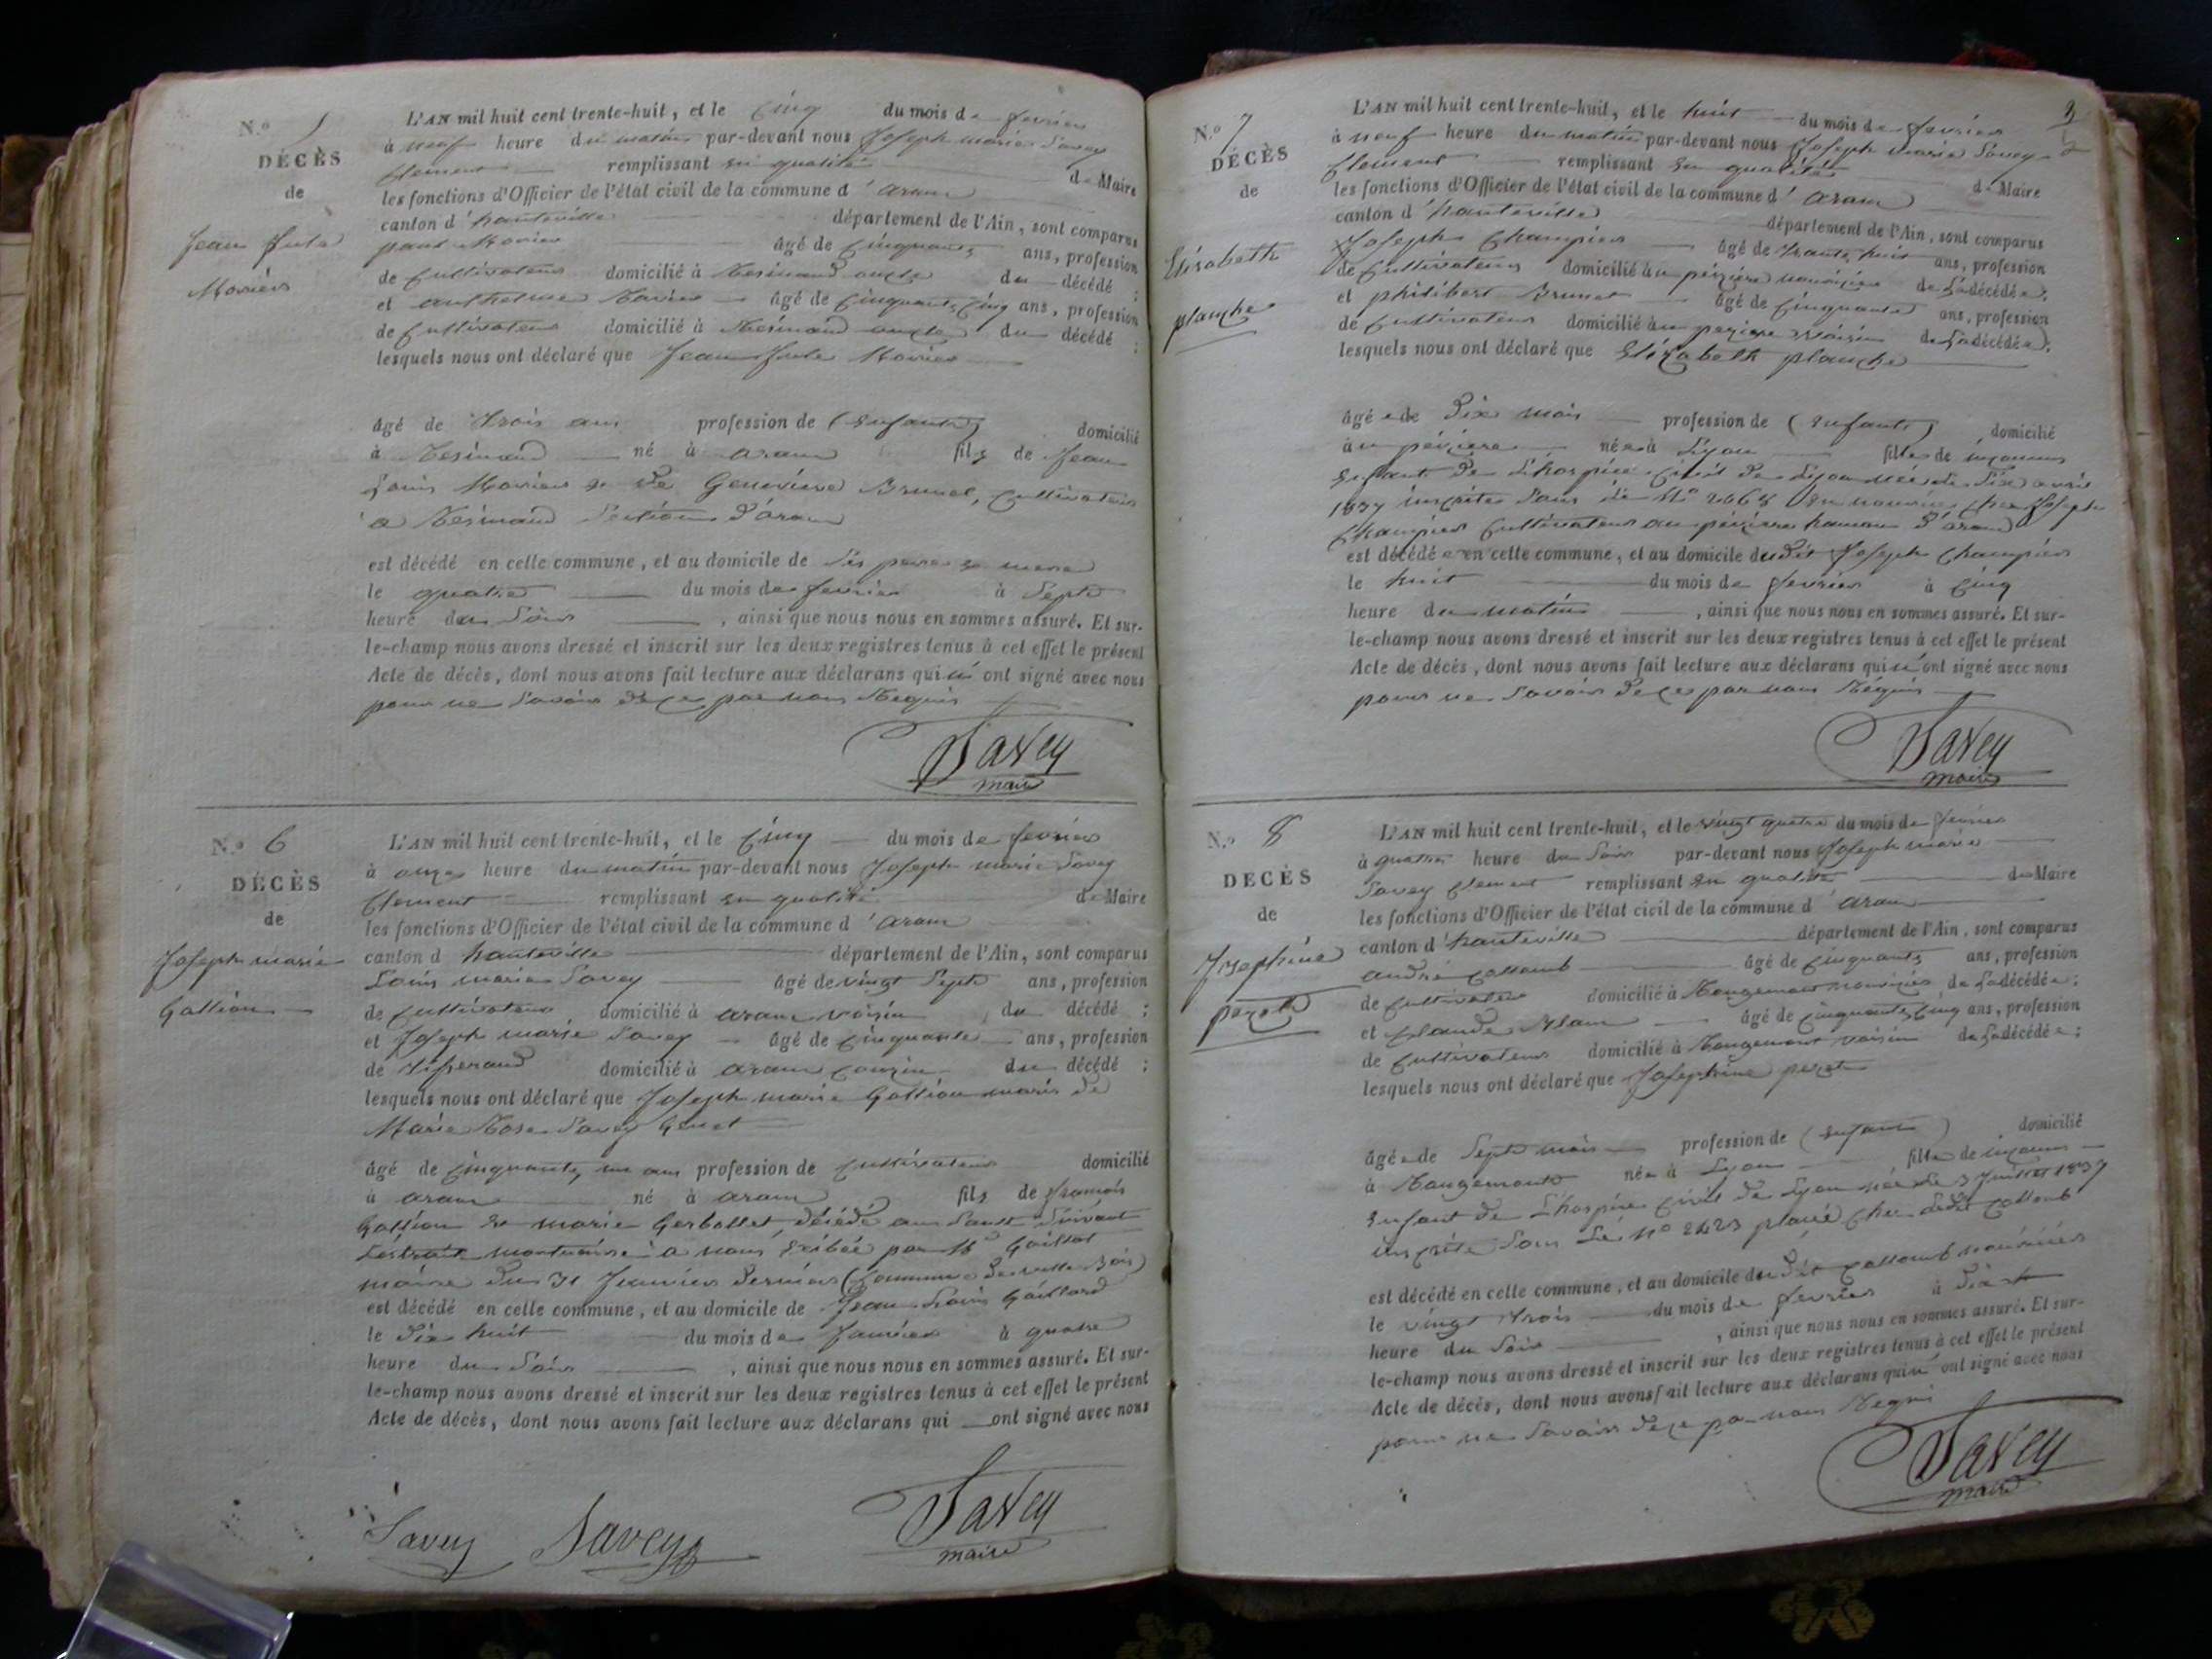 N.° 5
DÉCÈS
de
Jean Jule
Moriér
L'AN mil huit cent trente-huit, et le cinq du mois de fevrier
à neuf heure du matin par-devant nous Joseph marie Savey
Clement remplissant en qualité de Maire
les fonctions d'Officier de l'état civil de la commune d'aran
canton d'hauteville département de l'Ain, sont comparus
paul Morier âgé de cinquante ans, profession
de Cultivateur domicilié à Resinand oncle du décédé ;
et anthelme Morier âgé de cinquante cinq ans, profession
de Cultivateur domicilié à Resinand oncle du décédé ;
lesquels nous ont déclaré que Jean Jule Morier
âgé de trois ans profession de (Enfant) domicilié
à Resinand né à aran fils de Jean
Louis Morier et de Geneviève Brunet, Cultivateurs
a Resinand Section d'aran
est décédé en cette commune, et au domicile de Ses pere et mere
le quatre du mois de fevrier à Sept
heure du Soir , ainsi que nous nous en sommes assuré. Et sur-
le-champ nous avons dressé et inscrit sur les deux registres tenus à cet effet le présent
Acte de décès, dont nous avons fait lecture aux déclarans qui n' ont signé avec nous
pour ne Savoir de ce par nous Requis
Savey
maire
N.° 6
DÉCÈS
de
Joseph marie
Gallion
L'AN mil huit cent trente-huit, et le Cinq du mois de fevrier
à onze heure du matin par-devant nous Joseph marie Savey
Clement remplissant en qualité de Maire
les fonctions d'Officier de l'état civil de la commune d'aran
canton d hauteville département de l'Ain, sont comparus
Louis marie Savey âgé de vingt Sept ans, profession
de Cultivateur domicilié à aran voisin du décédé ;
et Joseph marie Savey âgé de cinquante ans, profession
de Tisserand domicilié à aran cousin du décédé ;
lesquels nous ont déclaré que Joseph marie Gallion maris de
Marie Rose Savey Genet
âgé de cinquante, un ans profession de Cultivateur domicilié
à aran né à aran fils de François
Gallion et marie Gerbollet, décédé au Sault Suivant
L'éxtrait mortuaire a nous Exibée par Mr Gaillot
maire du 31 Janvier dernier (Commune de ville Bois)
est décédé en cette commune, et au domicile de Jean Louis Gaillard
le Dix huit du mois de Janvier à quatre
heure du Soir , ainsi que nous nous en sommes assuré. Et sur-
le-champ nous avons dressé et inscrit sur les deux registres tenus à cet effet le présent
Acte de décès, dont nous avons fait lecture aux déclarans qui ont signé avec nous
Savey Savey Savey
maire
3
N.° 7
DÉCÈS
de
Elisabeth
planche
L'AN mil huit cent trente-huit, et le huit du mois de fevrier
à neuf heure du matin par-devant nous Joseph marie Savey
Clement remplissant en qualité de Maire
les fonctions d'Officier de l'état civil de la commune d'aran
canton d'hauteville département de l'Ain, sont comparus
Joseph Champier âgé de trente huit ans, profession
de Cultivateur domicilié au péziere nouricier de La décédée ;
et philibert Brunet âgé de cinquante ans, profession
de Cultivateur domicilié au peziere voisin de La décédée ;
lesquels nous ont déclaré que Elizabeth planche
âgée de Dix mois profession de (Enfant) domicilié
au péziere née à Lyon fille de inconnus
Enfant de L'hospice Civil de Lyon née le Dix avril
1837 inscrite Sous Le N° 2468 En nourice chez Joseph
Champier Cultivateur au péziere hameau d'aran
est décédée en cette commune, et au domicile dudit Joseph Champier
le huit du mois de fevrier à Cinq
heure du matin , ainsi que nous nous en sommes assuré. Et sur-
le-champ nous avons dressé et inscrit sur les deux registres tenus à cet effet le présent
Acte de décès, dont nous avons fait lecture aux déclarans qui n' ont signé avec nous
pour ne Savoir de ce par nous Réquis
Savey
maire
N.° 8
DÉCÈS
de
Josephine
L'AN mil huit cent trente-huit, et le vingt quatre du mois de fevrier
à quatre heure du Soir par-devant nous Joseph marie
Savey Clement remplissant en qualité de Maire
les fonctions d'Officier de l'état civil de la commune d'aran
canton d'hauteville département de l'Ain, sont comparus
andré Collomb âgé de cinquante ans, profession
de Cultivateur domicilié à Rougemont nouricier de La décédée ;
et Claude Blanc âgé de cinquante, cinq ans, profession
de Cultivateur domicilié à Rougemont voisin de La décédée ;
lesquels nous ont déclaré que Josephine
âgée de Sept mois profession de (Enfant) domicilié
à Rougemont née à Lyon fille de inconnus
Enfant de L'hospice Civil de Lyon née le 3 Juillet 1837
inscrite Sous Le N° 2423 placée chez ledit Collomb
est décédé en cette commune, et au domicile dudit Collomb nouricier
le vingt trois du mois de fevrier à Dix
heure du Soir , ainsi que nous nous en sommes assuré. Et sur-
le-champ nous avons dressé et inscrit sur les deux registres tenus à cet effet le présent
Acte de décès, dont nous avons fait lecture aux déclarans qui n' ont signé avec nous
pour ne Savoir de ce par nous Requi
Savey
maire